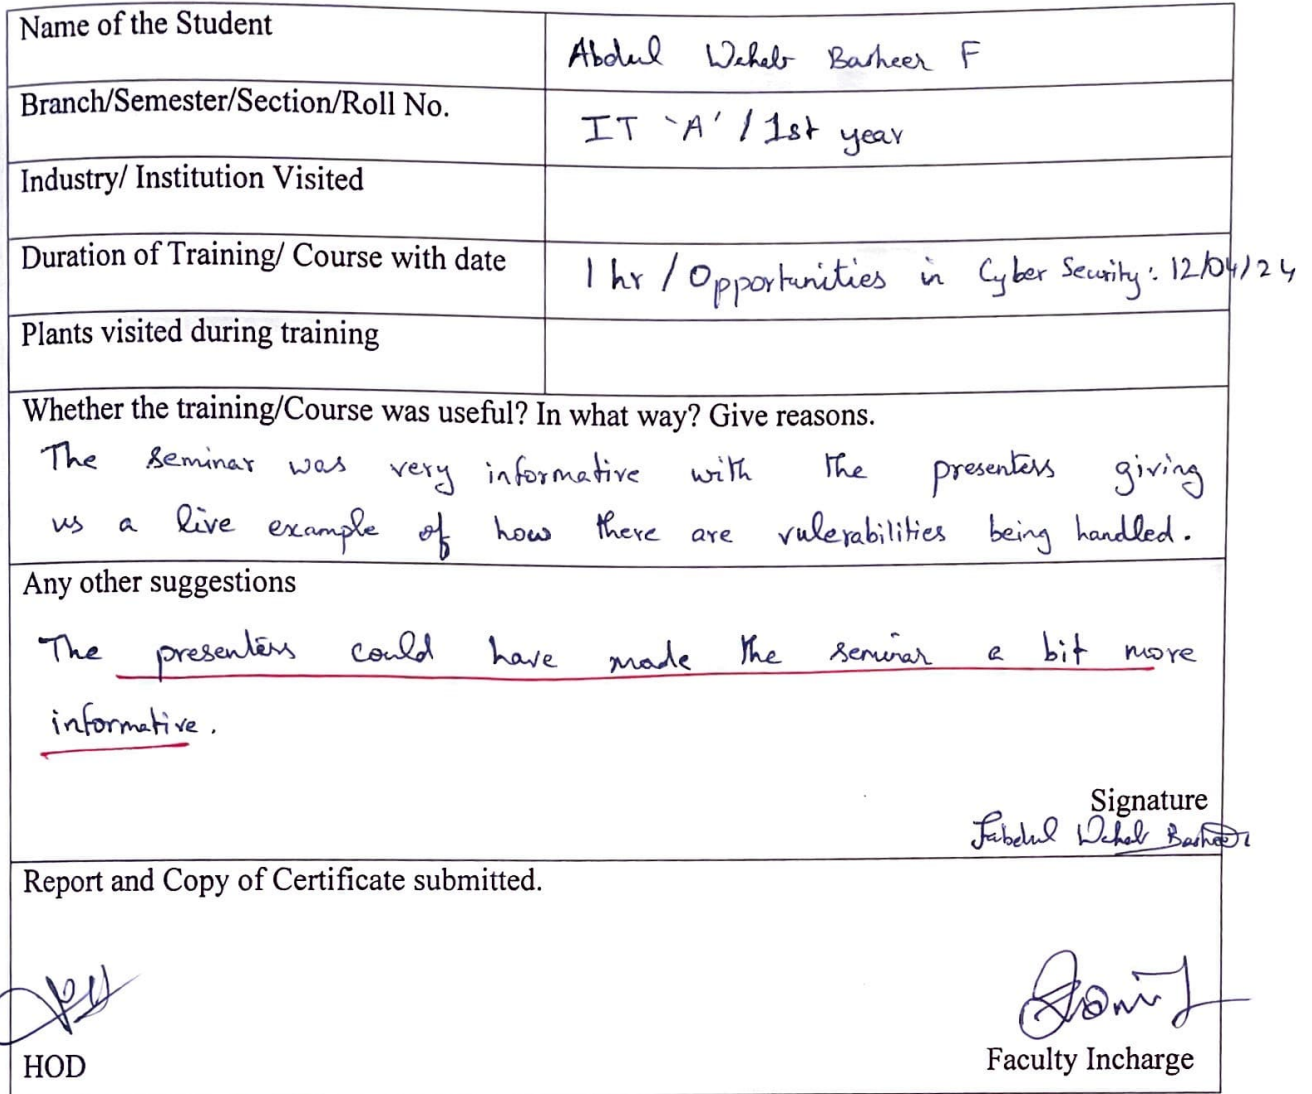 Name of the Student
Abdul Wahab Basheer F
Branch/Semester/Section/Roll No.
IT 'A' / 1st year
Industry/ Institution Visited
Duration of Training/ Course with date
1 hr / Opportunities in Cyber Security: 12/04/24
Plants visited during training
Whether the training/Course was useful? In what way? Give reasons.
The seminar was very informative with the presenters giving
us a live example of how there are vulerabilities being handled.
Any other suggestions
The presenters could have made the seminar a bit more
informative.
Signature
Fabdul Wahab Basheer
Report and Copy of Certificate submitted.
HOD
Faculty Incharge